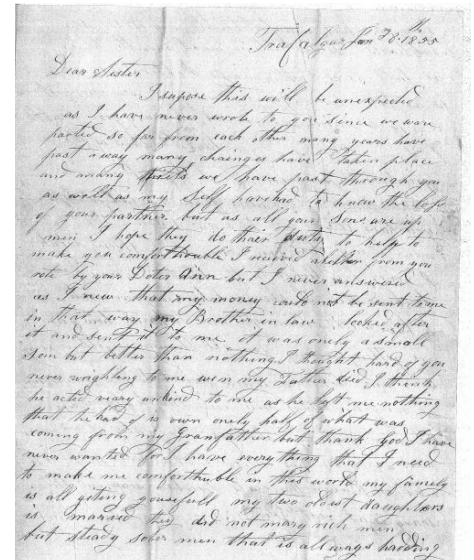 Trafalgar Jan 28th 1855
Dear Sister
I supose this will be unexpected
as I have never wrote to you since we ware
parted so far from each other many years have
past away many chainges have taken place
and many we have past through you
as well as my self have had to know the loss
of your partner but as all your Sons are up
men I hope they do thair duty to help to
make you comforthable I receved a letter from you
rote by your Doter Ann but I never answered
as I new that my money could not be sent to me
in that way my Brother in law looked after
it and sent it to me it was onely a small
som but better than nothing I thought hard of you
never wrighting to me wen my Father died I think
he acted veary unkind to me as he left me nothing
that he had of is own onely half of what was
coming from my Granfather but thank god I have
never wanted for I have everything that I need
to make me comforthable in this world my family
is all geting yousefull my two oldest daughters
is married they did not mary rich men
but steady sober men that is all ways